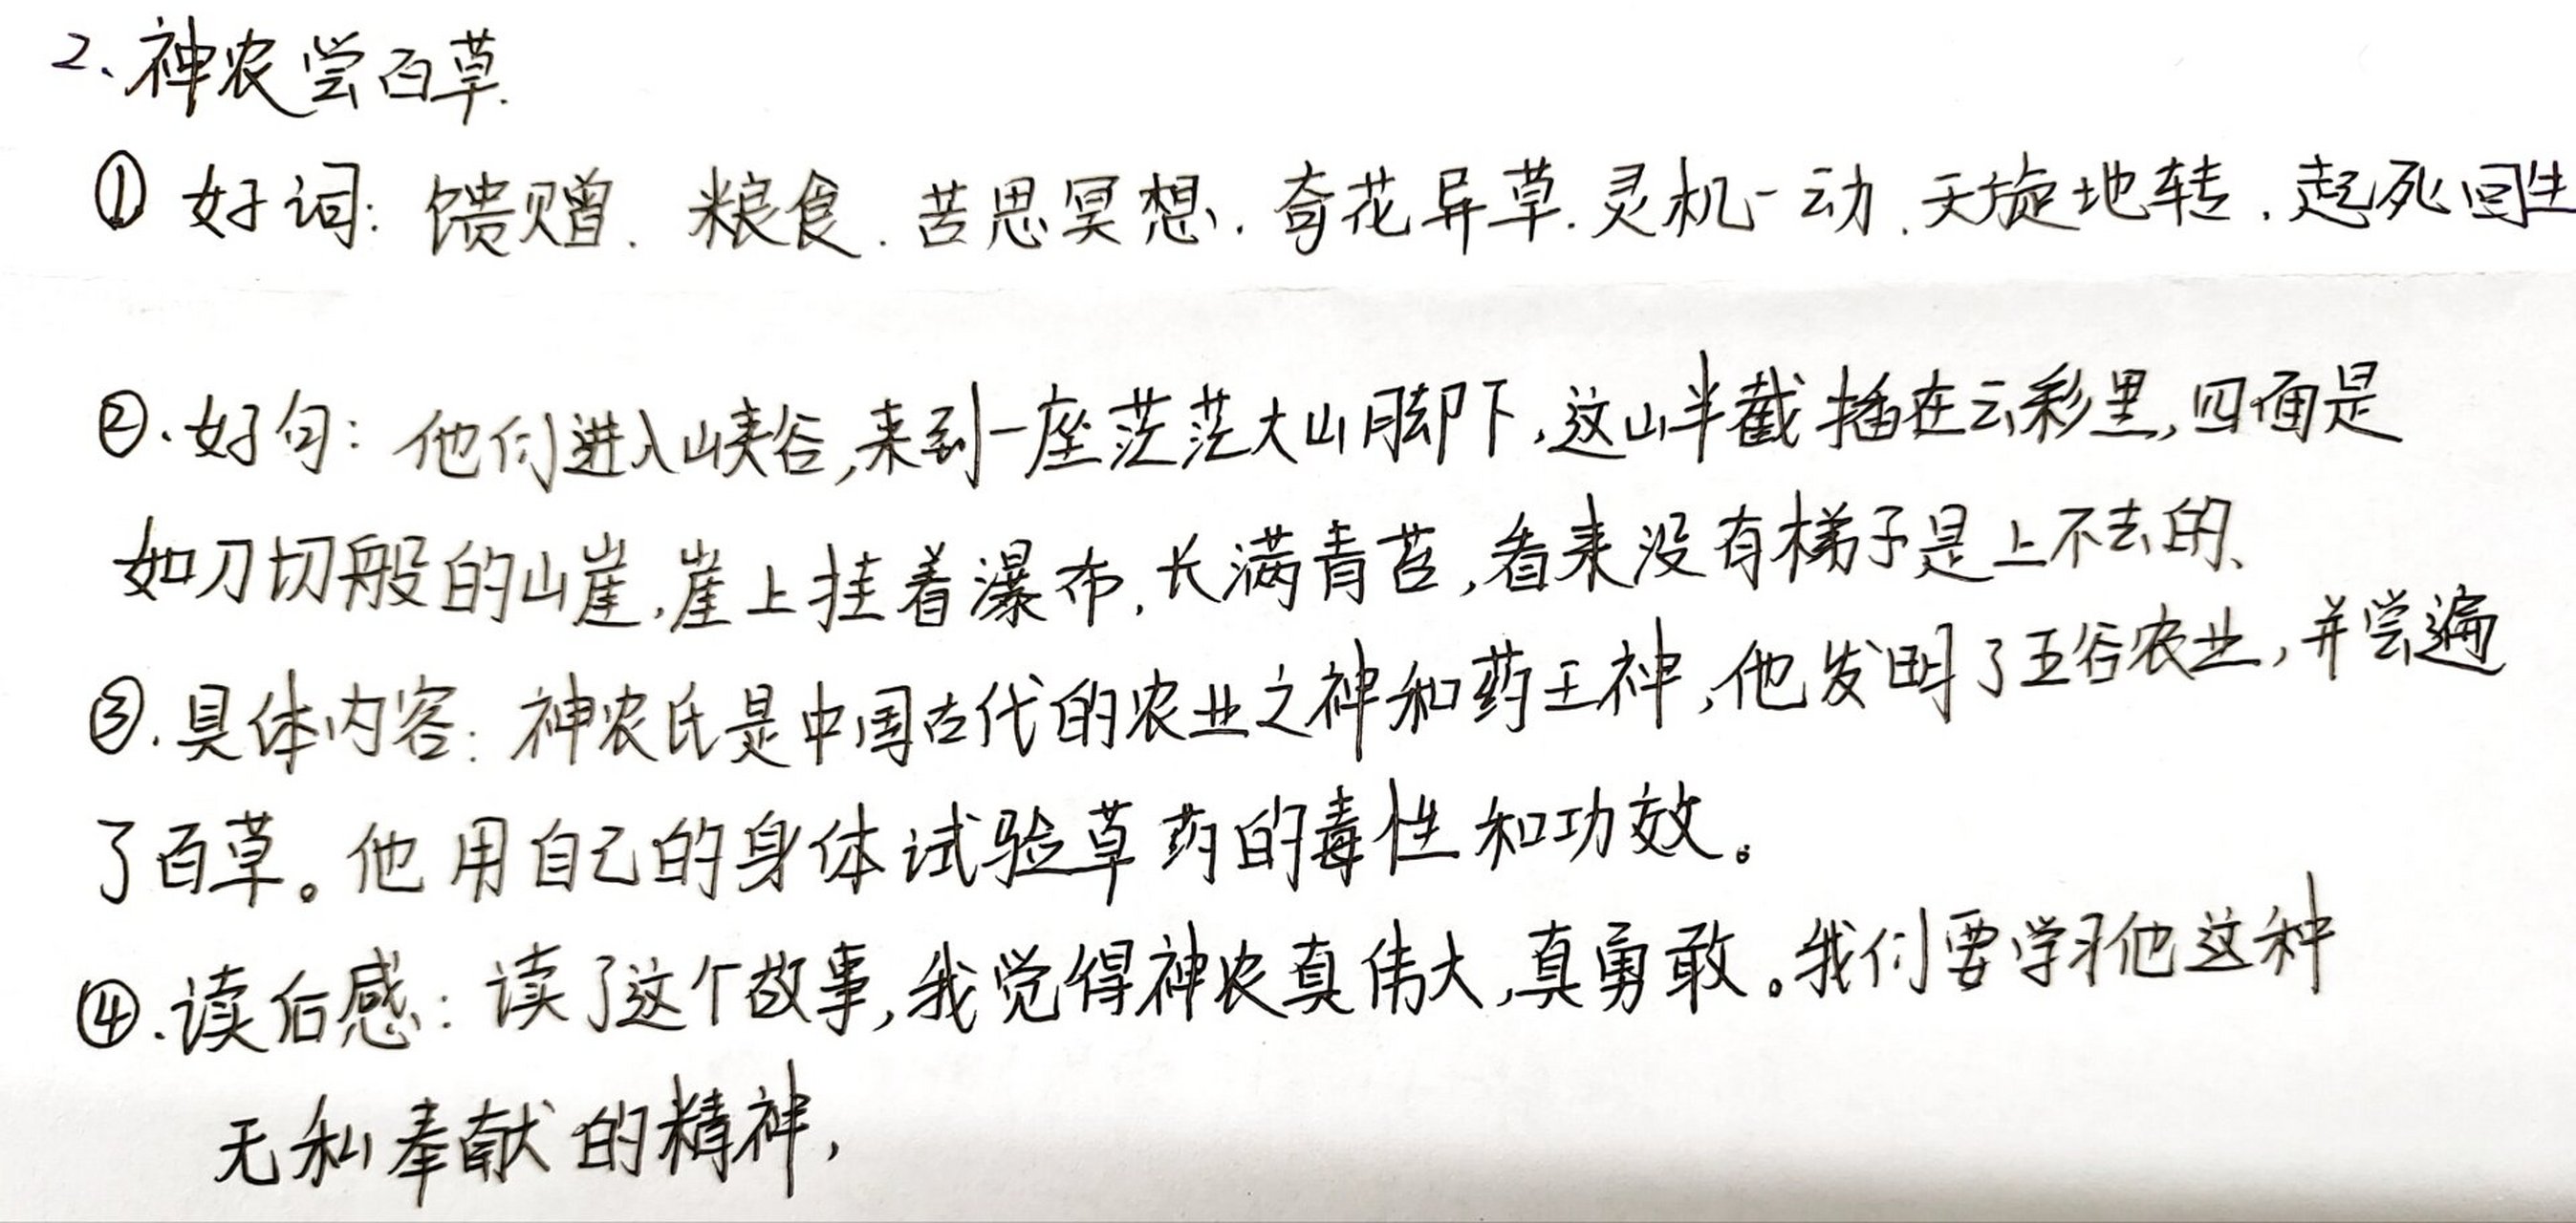 2、神农尝百草.
① 好词: 馈赠. 粮食. 苦思冥想. 奇花异草. 灵机一动. 天旋地转. 起死回生
②.好句: 他们进入峡谷,来到一座茫茫大山脚下,这山半截插在云彩里,四面是
如刀切般的山崖,崖上挂着瀑布,长满青苔,看来没有梯子是上不去的、
③.具体内容: 神农氏是中国古代的农业之神和药王神,他发明了五谷农业,并尝遍
了百草。他用自己的身体试验草药的毒性和功效。
④.读后感: 读了这个故事,我觉得神农真伟大,真勇敢。我们要学习他这种
无私奉献的精神,